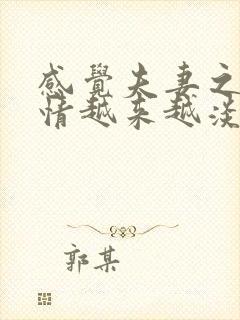 感覺夫妻之
情越来越淡
郭某